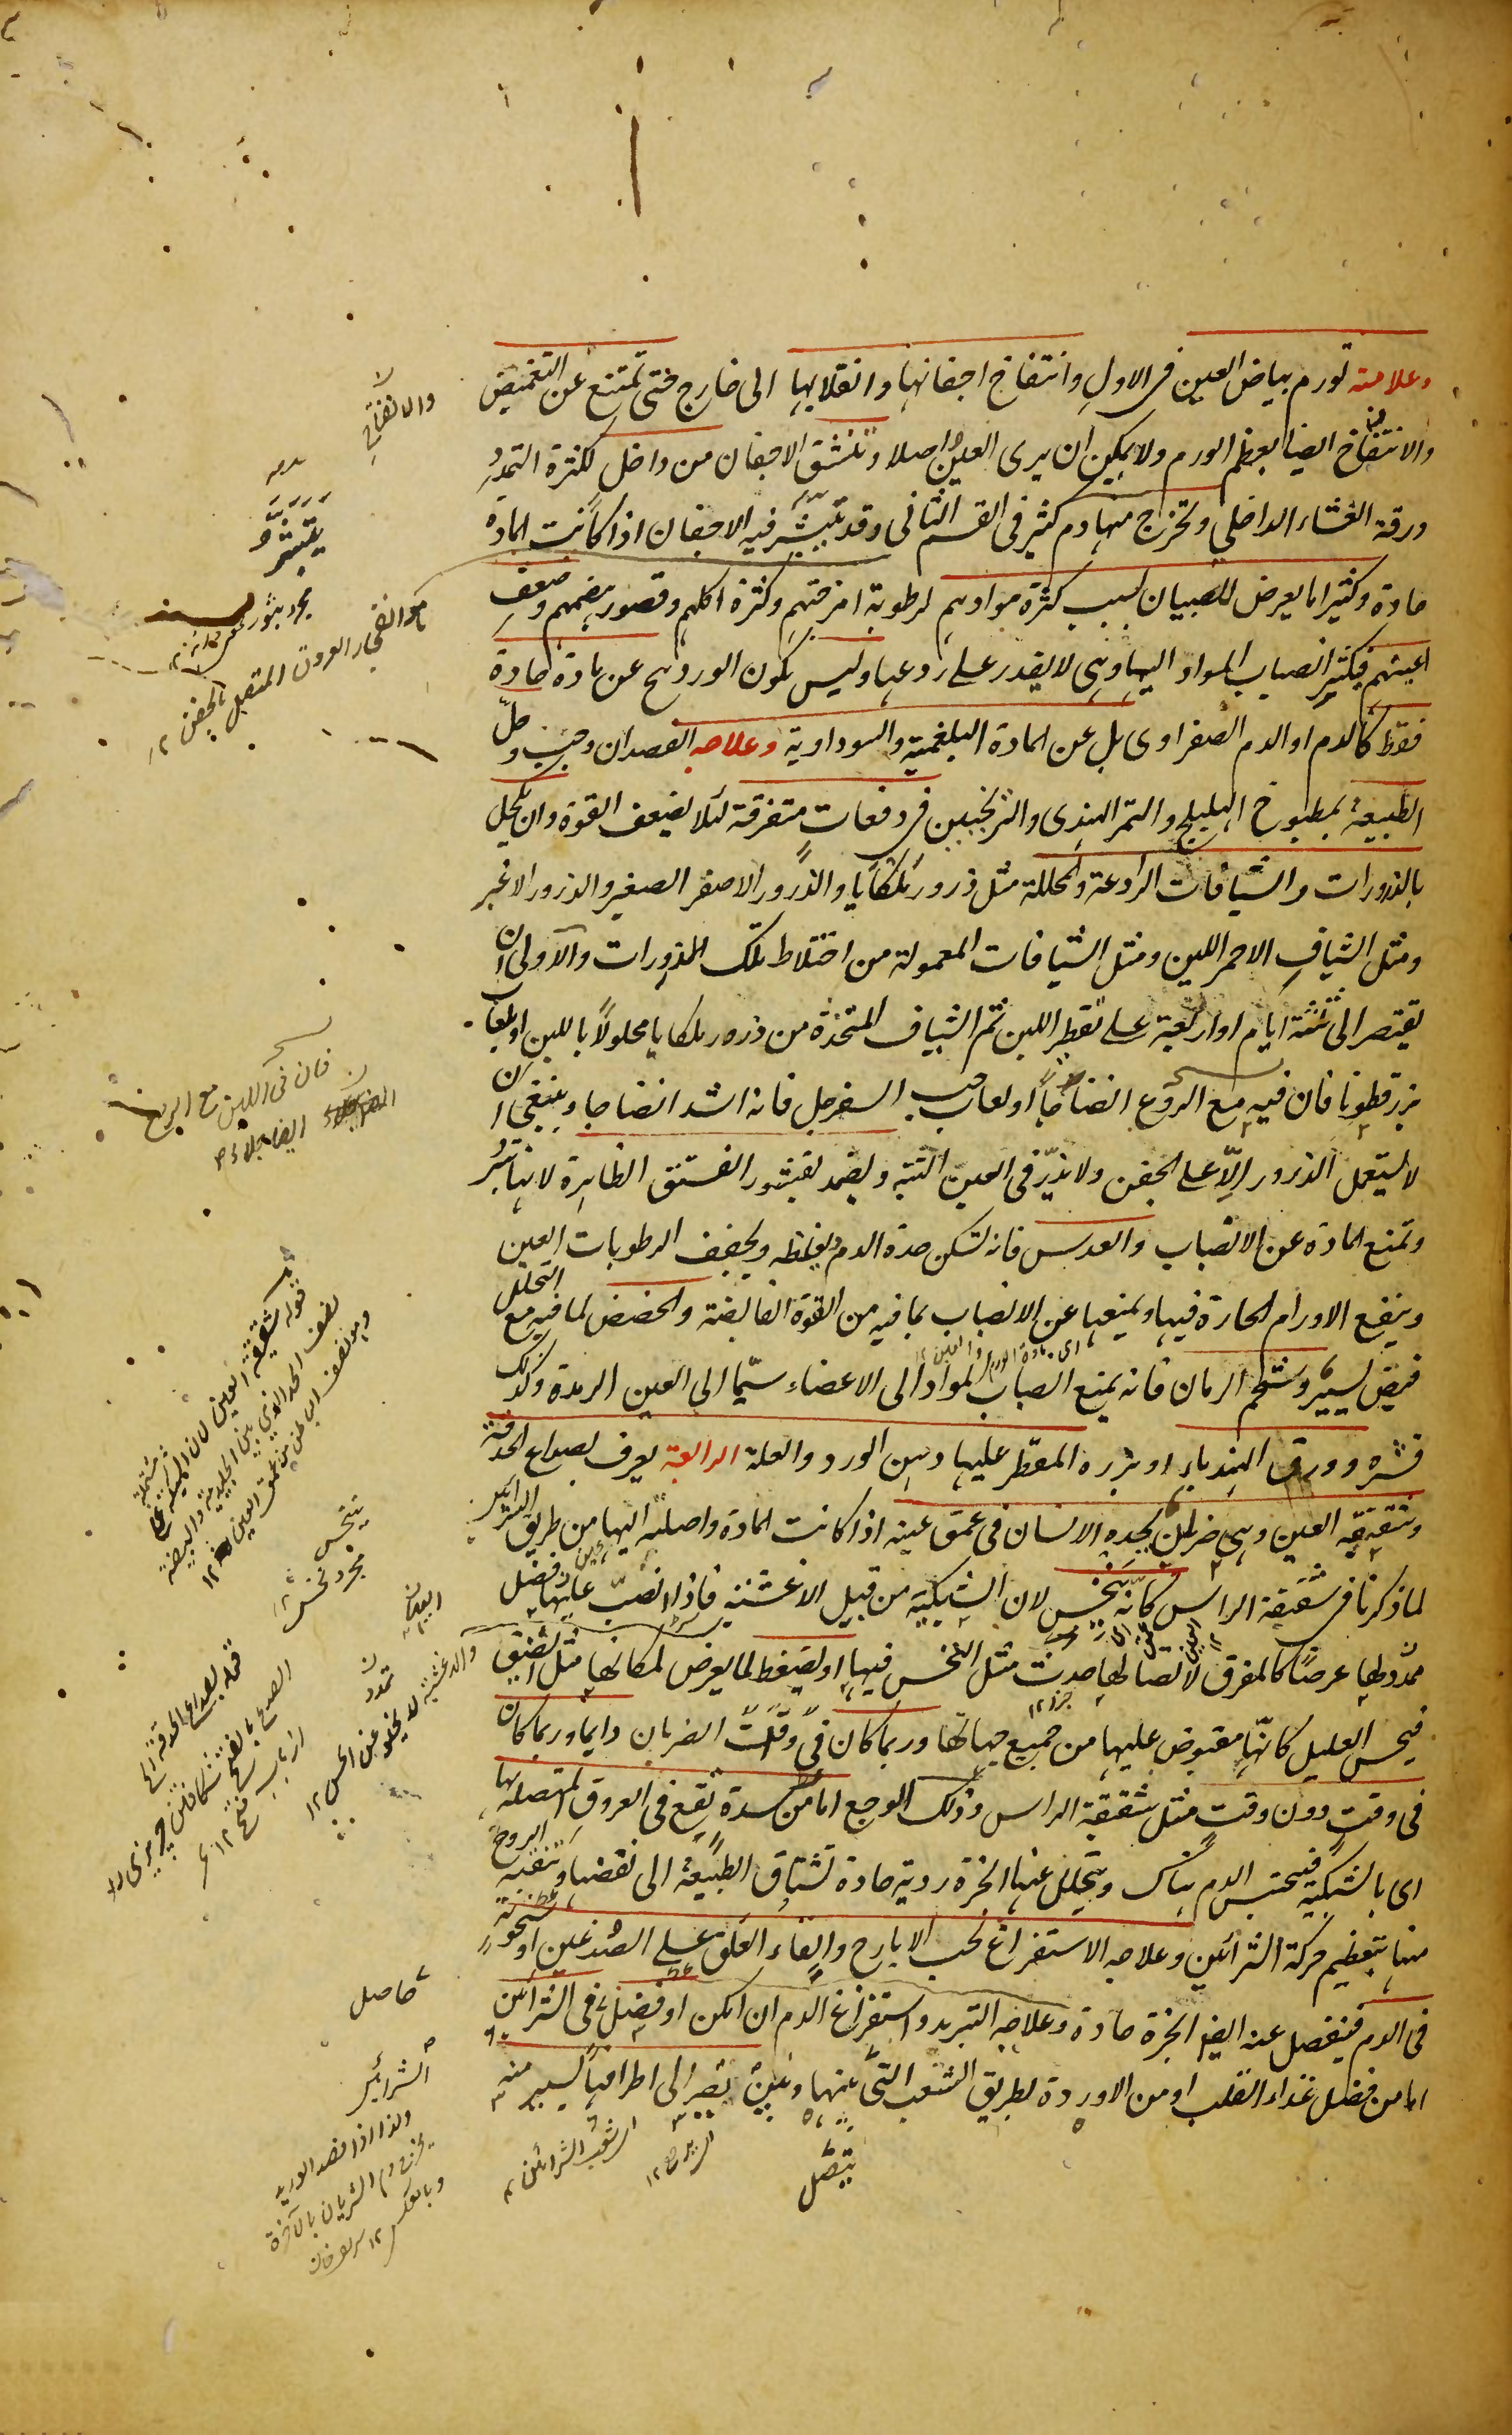 وعلامته تورم بياض العين فى الاول وانتفاخ اجفانها وانقلابها الى خارج حتى تمتنع عن التغميض
والانتفاخ ايضا لعظم الورم ولا يمكن ان يرى العين اصلا وتنشق الاجفان من داخل لكثرة التمدد
ورقة الغشاء الداخلي وتخرج منها دم كثير فى القسم الثانى وقد تتبثر فيه الاجفان اذا كانت المادة
حادة وكثيرا ما يعرض للصبيان بسبب كثرة موادهم لرطوبة امزجتهم وكثرة اكلهم وقصور هضمهم وضعف
اعينهم فيكثر انصباب المواد اليها وهى لا يقدر على ردعها وليس يكون الوردينج عن مادة حادة
فقط كالدم او الدم الصفراوى بل عن المادة البلغمية والسوداوية وعلاجه الفصد ان وجب وحل
الطبيعة بمطبوخ الهليلج والتمر الهندى والترنجبين فى دفعات متفرقة لئلا يضعف القوة وان يكحل
بالذرورات والشيافات الرادعة والمحللة مثل ذرور ملكايا والذرور الاصفر الصغير والذرور الاغبر
ومثل الشياف الاحمر اللين ومثل الشيافات المعمولة من اختلاط تلك الذرورات والاولى ان
يقتصر الى ثلثة ايام او اربعة على تقطير اللبن ثم الشياف المتخذة من ذرور ملكايا محلولا باللبن او لعاب
بزر قطونا فان فيه مع الردع انضاجا او لعاب حب السفرجل فانه اشد انضاجا وينبغى ان
لا يستعمل الذرور الا على الجفن ولا يذر فى العين البتة ويضمد بقشور الفستق الظاهرة لانها تبرد
وتمنع المادة عن الانصباب والعدس فانه تسكن حدة الدم ويغلظه ويجفف الرطوبات العين
وينفع الاورام الحارة فيها ويمنعها عن الانصباب بما فيه من القوة القابضة والحضض لما فيه مع التحلل
قبض يسير وشحم الرمان فانه يمنع انصباب المواد الى الاعضاء سيما الى العين الرمدة وكذلك
قشره وورق الهندباء او بزره المقطر عليها دهن الورد والعلة الرابعة يعرف بصداع الحدقة
وشقيقة العين وهى ضربان يجده الانسان فى عمق عينه اذا كانت المادة واصلة اليها من طريق الشرائين
لما ذكرنا فى شقيقة الراس كانه ينخس لان الشبكية من قبيل الاغشية فاذا انصب عليها فضل
مددها عرضا كالمفرق لاتصالها حدثت مثل النخس فيها او يضغط لما يعرض لمكانها مثل الضيق
فيحس العليل كانها مقبوض عليها من جميع جهاتها وربما كان فى وقت الضربان دايما وربما كان
فى وقت دون وقت مثل شقيقة الراس وذلك الوجع اما من سدة تقع فى العروق المتصلة بها
اى بالشبكية فيحتبس الدم هناك ويتحلل عنها ابخرة ردية حادة تشتاق الطبيعة الى نفضها وتنقية الروح
منها بتعظيم حركة الشرائين وعلاجه الاستفراغ بحب الايارج والقاء العلق على الصدغين او سخونة
فى الدم فينفصل عنه ايضا ابخرة حادة وعلاجه التبريد واستفراغ الدم ان امكن او فضل فى الشرائين
اما من فضل غذاء القلب او من الاوردة بطريق الشعب التى عنها وبين يصير الى اطرافها يسير منه
يتصل
والانفتاح
يتبثر
مجرد بثور
نحو انفجار العروق المتصل بالجفن ١٢
فان فى اللبن مع الردع
ايضا جلاء
قوله شقيقة العين لان الشبكية
ينخس
مجرد نخس ١٢
تمدد
والاغشية لا يخلو عن الحس ١٢
قوله بصداع الحدقة
حاصل
الشرائين
ولذا اذا فصد الوريد
يخرج دم الشريان بالآخرة
وبالعكس ١٢